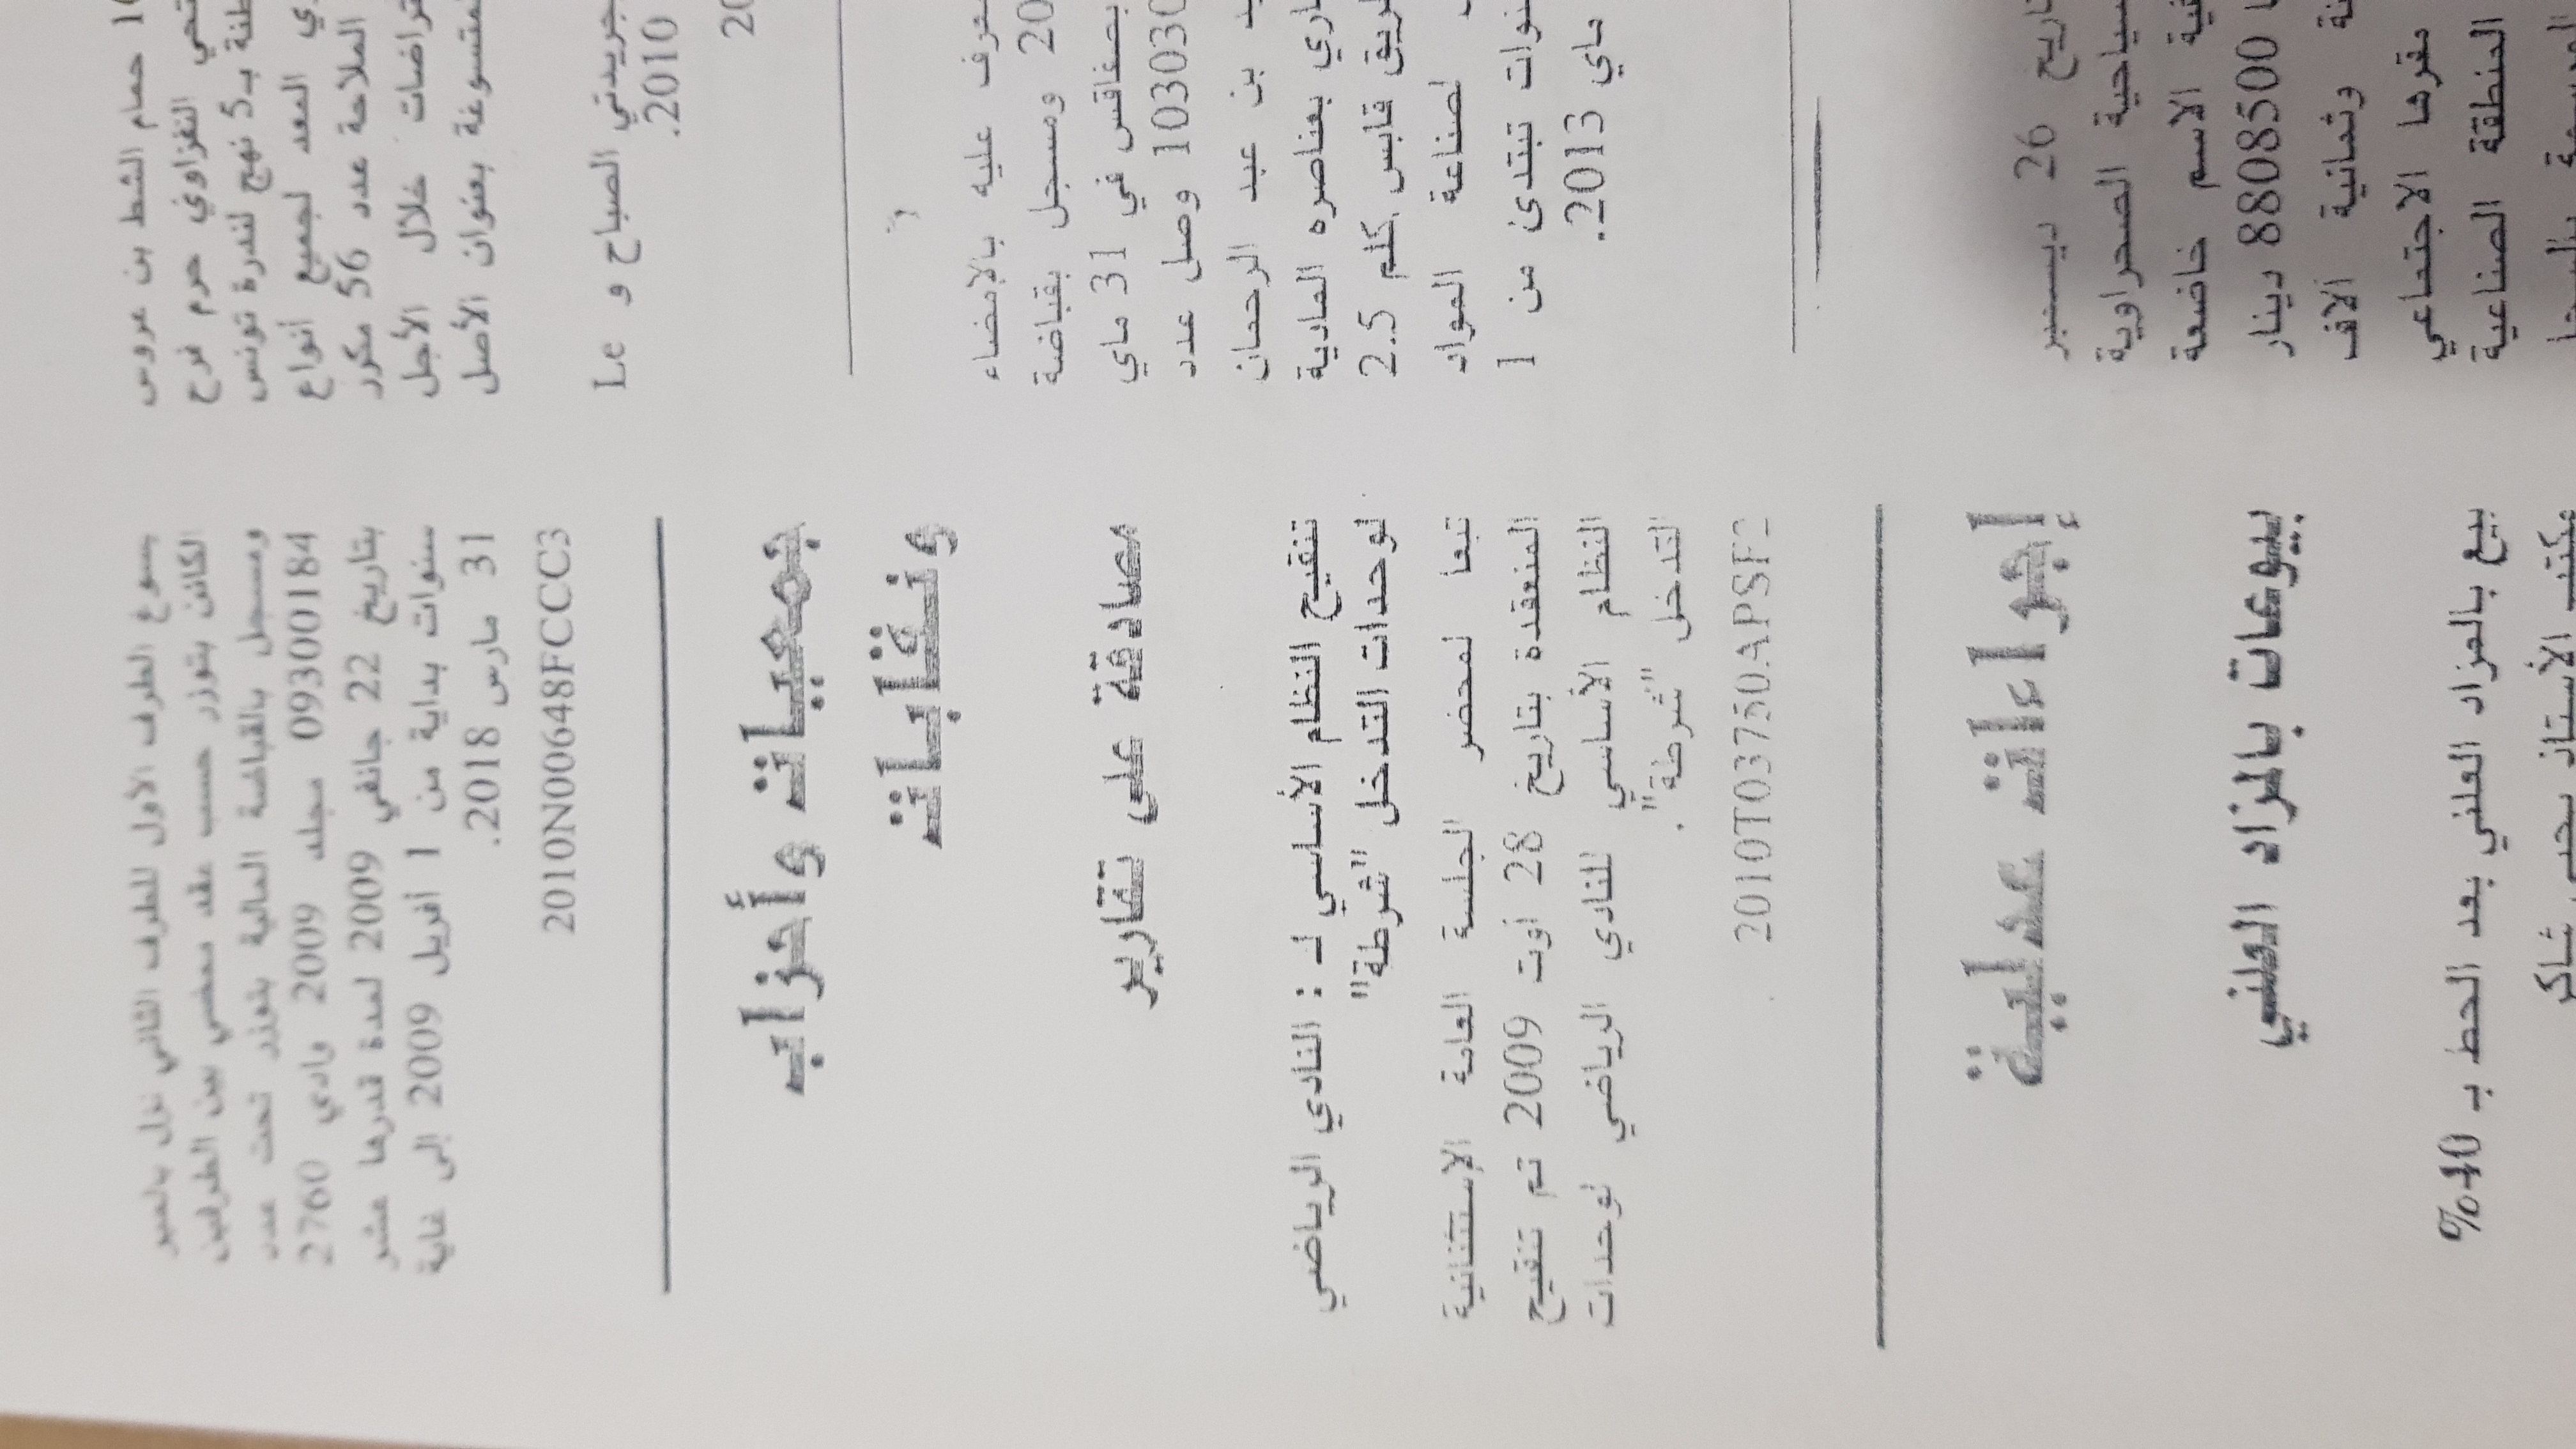 يسوغ الطرف الأول للطرف الثاني نزل بالمير
الكائن بتوزر حسب عقد ممضي بين الطرفين
ومسجل بالقباضة المالية بتوزر تحت عدد
09300184 مجلد 2009 وادي 2760
بتاريخ 22 جانفي 2009 لمدة قدرها عشر
سنوات بداية من 1 أفريل 2009 الى غاية
31 مارس 2018.
2010N00648FCCC3
جمعيات وأحزاب
ونقابات
مصادقة على تقارير
تنقيح النظام الأساسي لـ : النادي الرياضي
لوحدات التدخل "شرطة"
تبعا لمحضر الجلسة العامة الإستثنائية
المنعقدة بتاريخ 28 أوت 2009 تم تنقيح
النظام الأساسي للنادي الرياضي لوحدات
التدخل "شرطة".
2010T03750APSF2
إجراءات عدلية
بيوعات بالمزاد العلني
بيع بالمزاد العلني بعد الحط بـ 40%
مكتب الأستاذ شاكر
حمام الشط بن عروس
النفزاوي حرم فرح
بـ5 نهج لندرة تونس
المعد لجميع أنواع
الملاحة عدد 56 مكرر
خلال الأجل
بعنوان الأصل
جريدتي الصباح و Le
2010.
عليه بالإمضاء
ومسجل بقباضة
في 31 ماي
وصل عدد
بن عبد الرحمان
بعناصره المادية
قابس كلم 2.5
لصناعة المواد
تبتدئ من 1
ماي 2013.
26 ديسمبر
الصحراوية
الاسم خاضعة
8808500 دينار
وثمانية الاف
مقرها الاجتماعي
المنطقة الصناعية